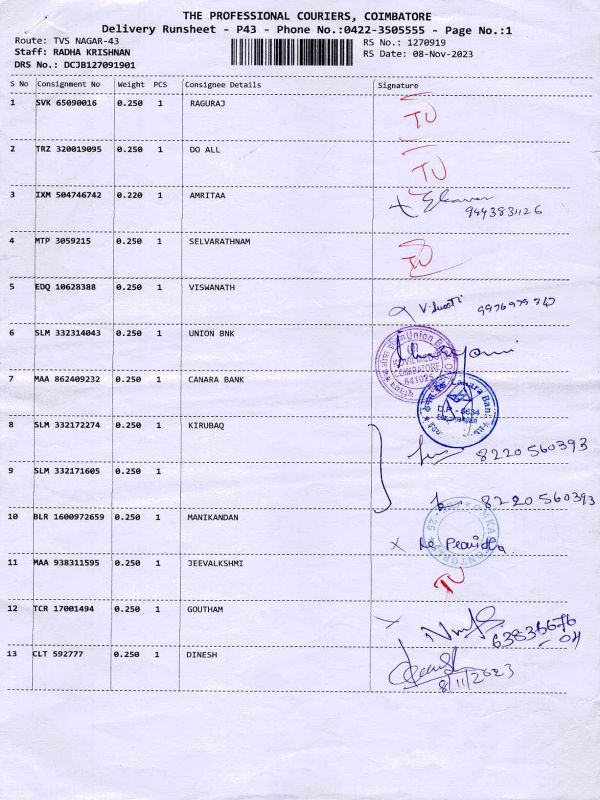 THE PROFESSIONAL COURIERS, COIMBATORE
Delivery Runsheet - P43 - Phone No.:0422-3505555 - Page No.:1
Route: TVS NAGAR-43
RS No.: 1270919
Staff: RADHA KRISHNAN
RS Date: 08-Nov-2023
DRS No.: DCJB127091901
S No Consignment No Weight PCS Consignee Details Signature
1 SVK 65090016 0.250 1 RAGURAJ
2 TRZ 320019095 0.250 1 DO ALL
3 IXM 504746742 0.220 1 AMRITAA
9443831126
4 MTP 3059215 0.250 1 SELVARATHNAM
5 EDQ 10628388 0.250 1 VISWANATH
6 SLM 332314043 0.250 1 UNION BNK
Union Bank
COIMBATORE
641025
7 MAA 862409232 0.250 1 CANARA BANK
Canara Bank
8 SLM 332172274 0.250 1 KIRUBAQ
8220560393
9 SLM 332171605 0.250 1
8220560393
10 BLR 1600972659 0.250 1 MANIKANDAN
11 MAA 938311595 0.250 1 JEEVALKSHMI
12 TCR 17001494 0.250 1 GOUTHAM
13 CLT 592777 0.250 1 DINESH
8/11/2023